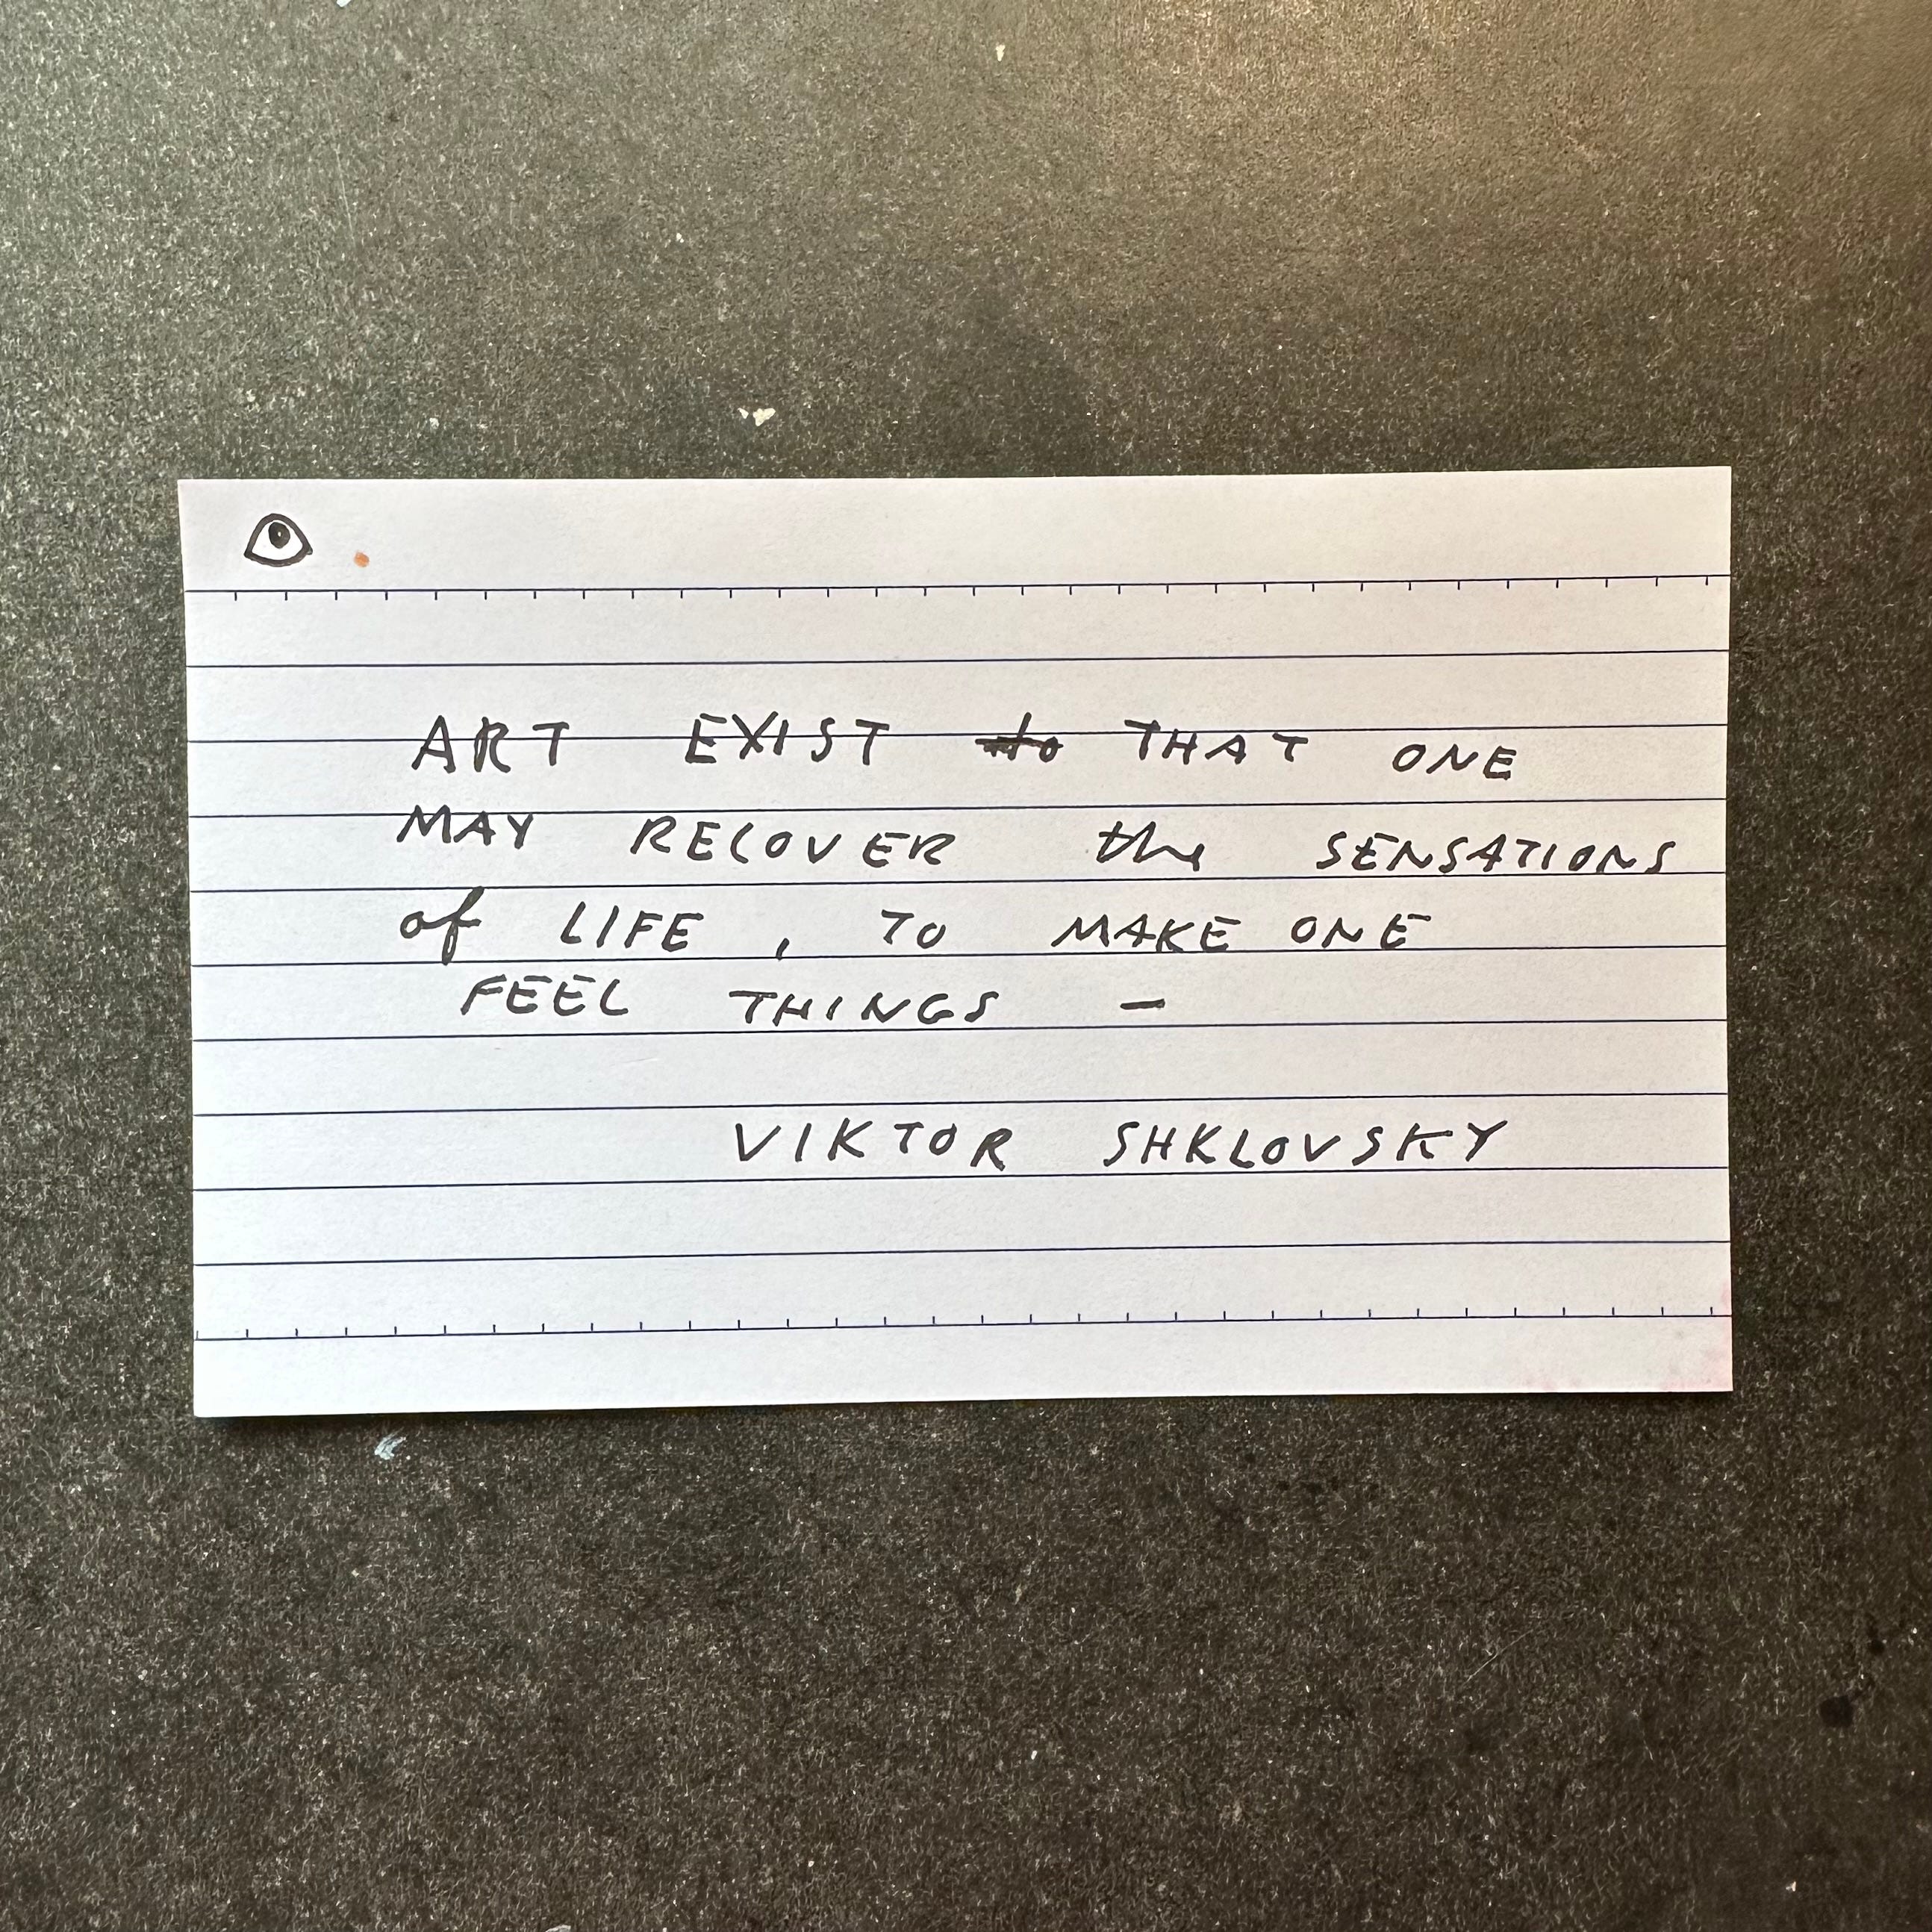 ART EXIST to THAT ONE
MAY RECOVER the SENSATIONS
of LIFE, TO MAKE ONE
FEEL THINGS –
VIKTOR SHKLOVSKY